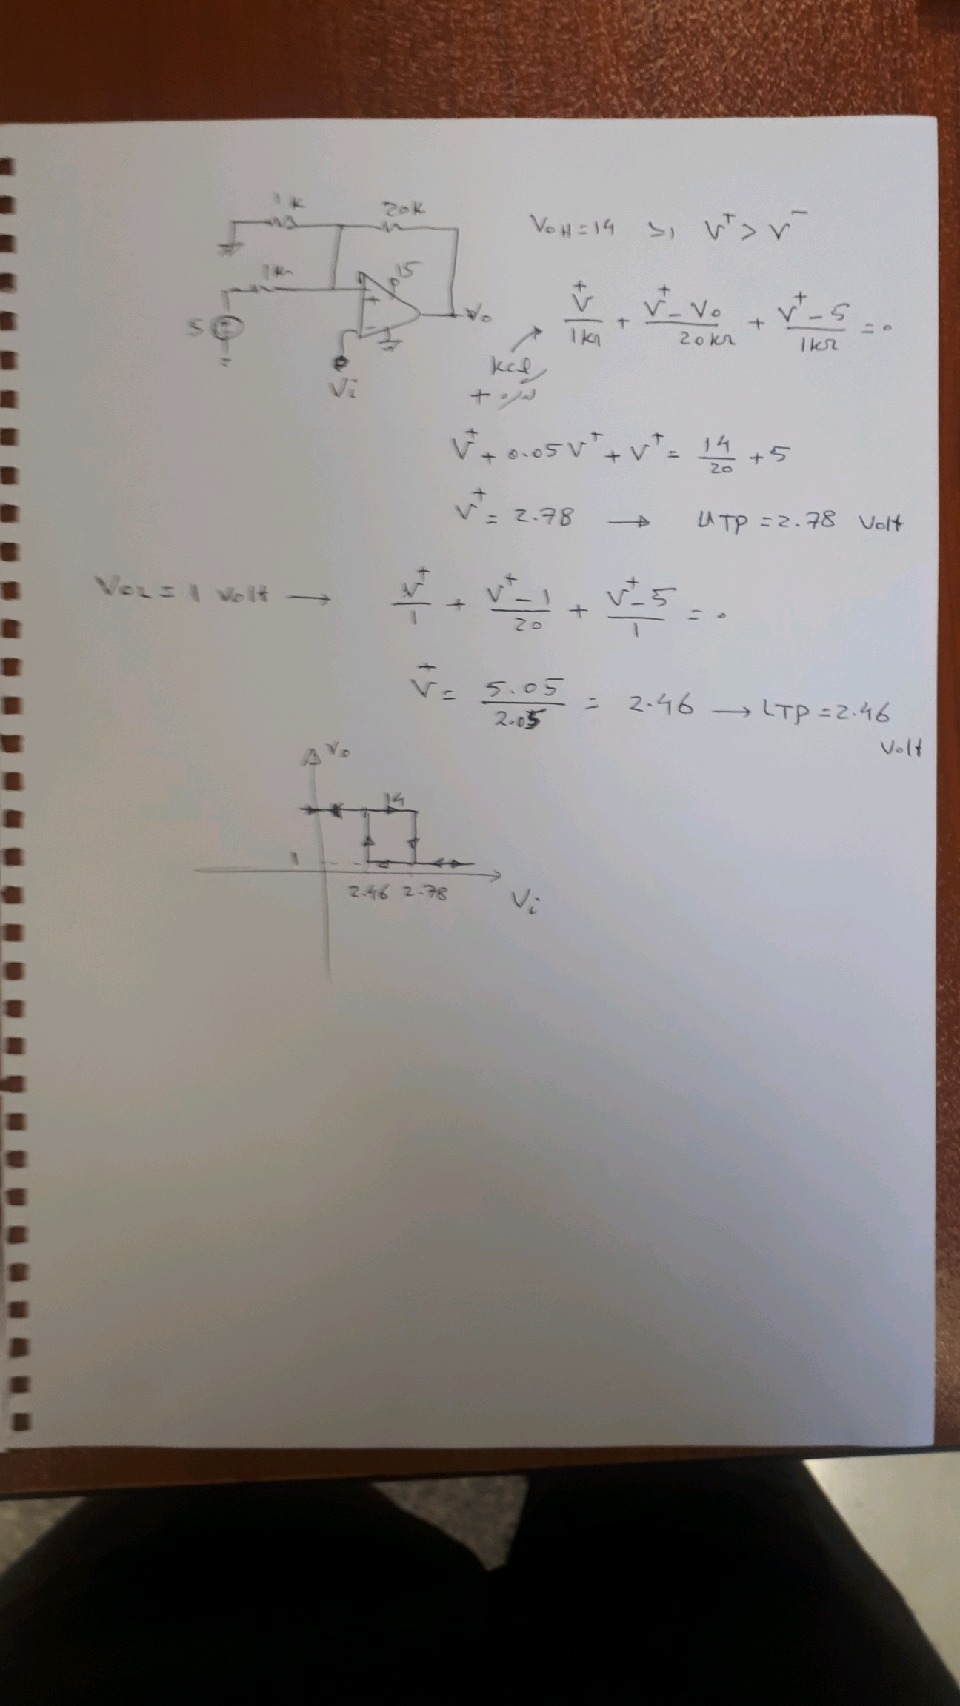 1k 20k
VOH = 14 اگر V⁺ > V⁻
1k 15
5 + - Vo
Vi
V⁺/1kΩ + (V⁺ - Vo)/20kΩ + (V⁺ - 5)/1kΩ = 0
kcl
+
V⁺ + 0.05V⁺ + V⁺ = 14/20 + 5
V⁺ = 2.78 → UTP = 2.78 Volt
VOL = 1 Volt → V⁺/1 + (V⁺ - 1)/20 + (V⁺ - 5)/1 = 0
V⁺ = 5.05/2.05 = 2.46 → LTP = 2.46
Volt
Vo
14
1
2.46 2.78 Vi